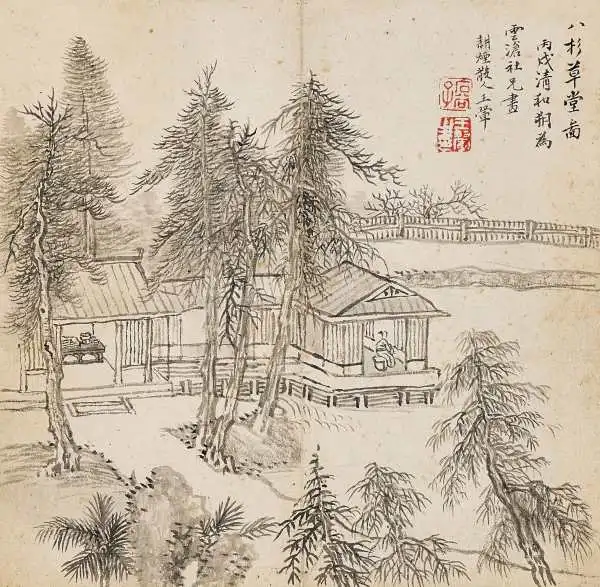 八杉草堂啚
丙戌清和朔為
雲澹社兄畫
耕煙散人王翬